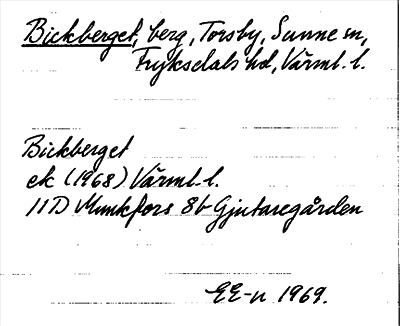 Bickberget, berg, Torsby, Sunne sn,
Fryksdals hd, Värml. l.
Bickberget
ek (1968) Värml. l.
11D Munkfors 8b Gjutaregården
EE-n 1969.